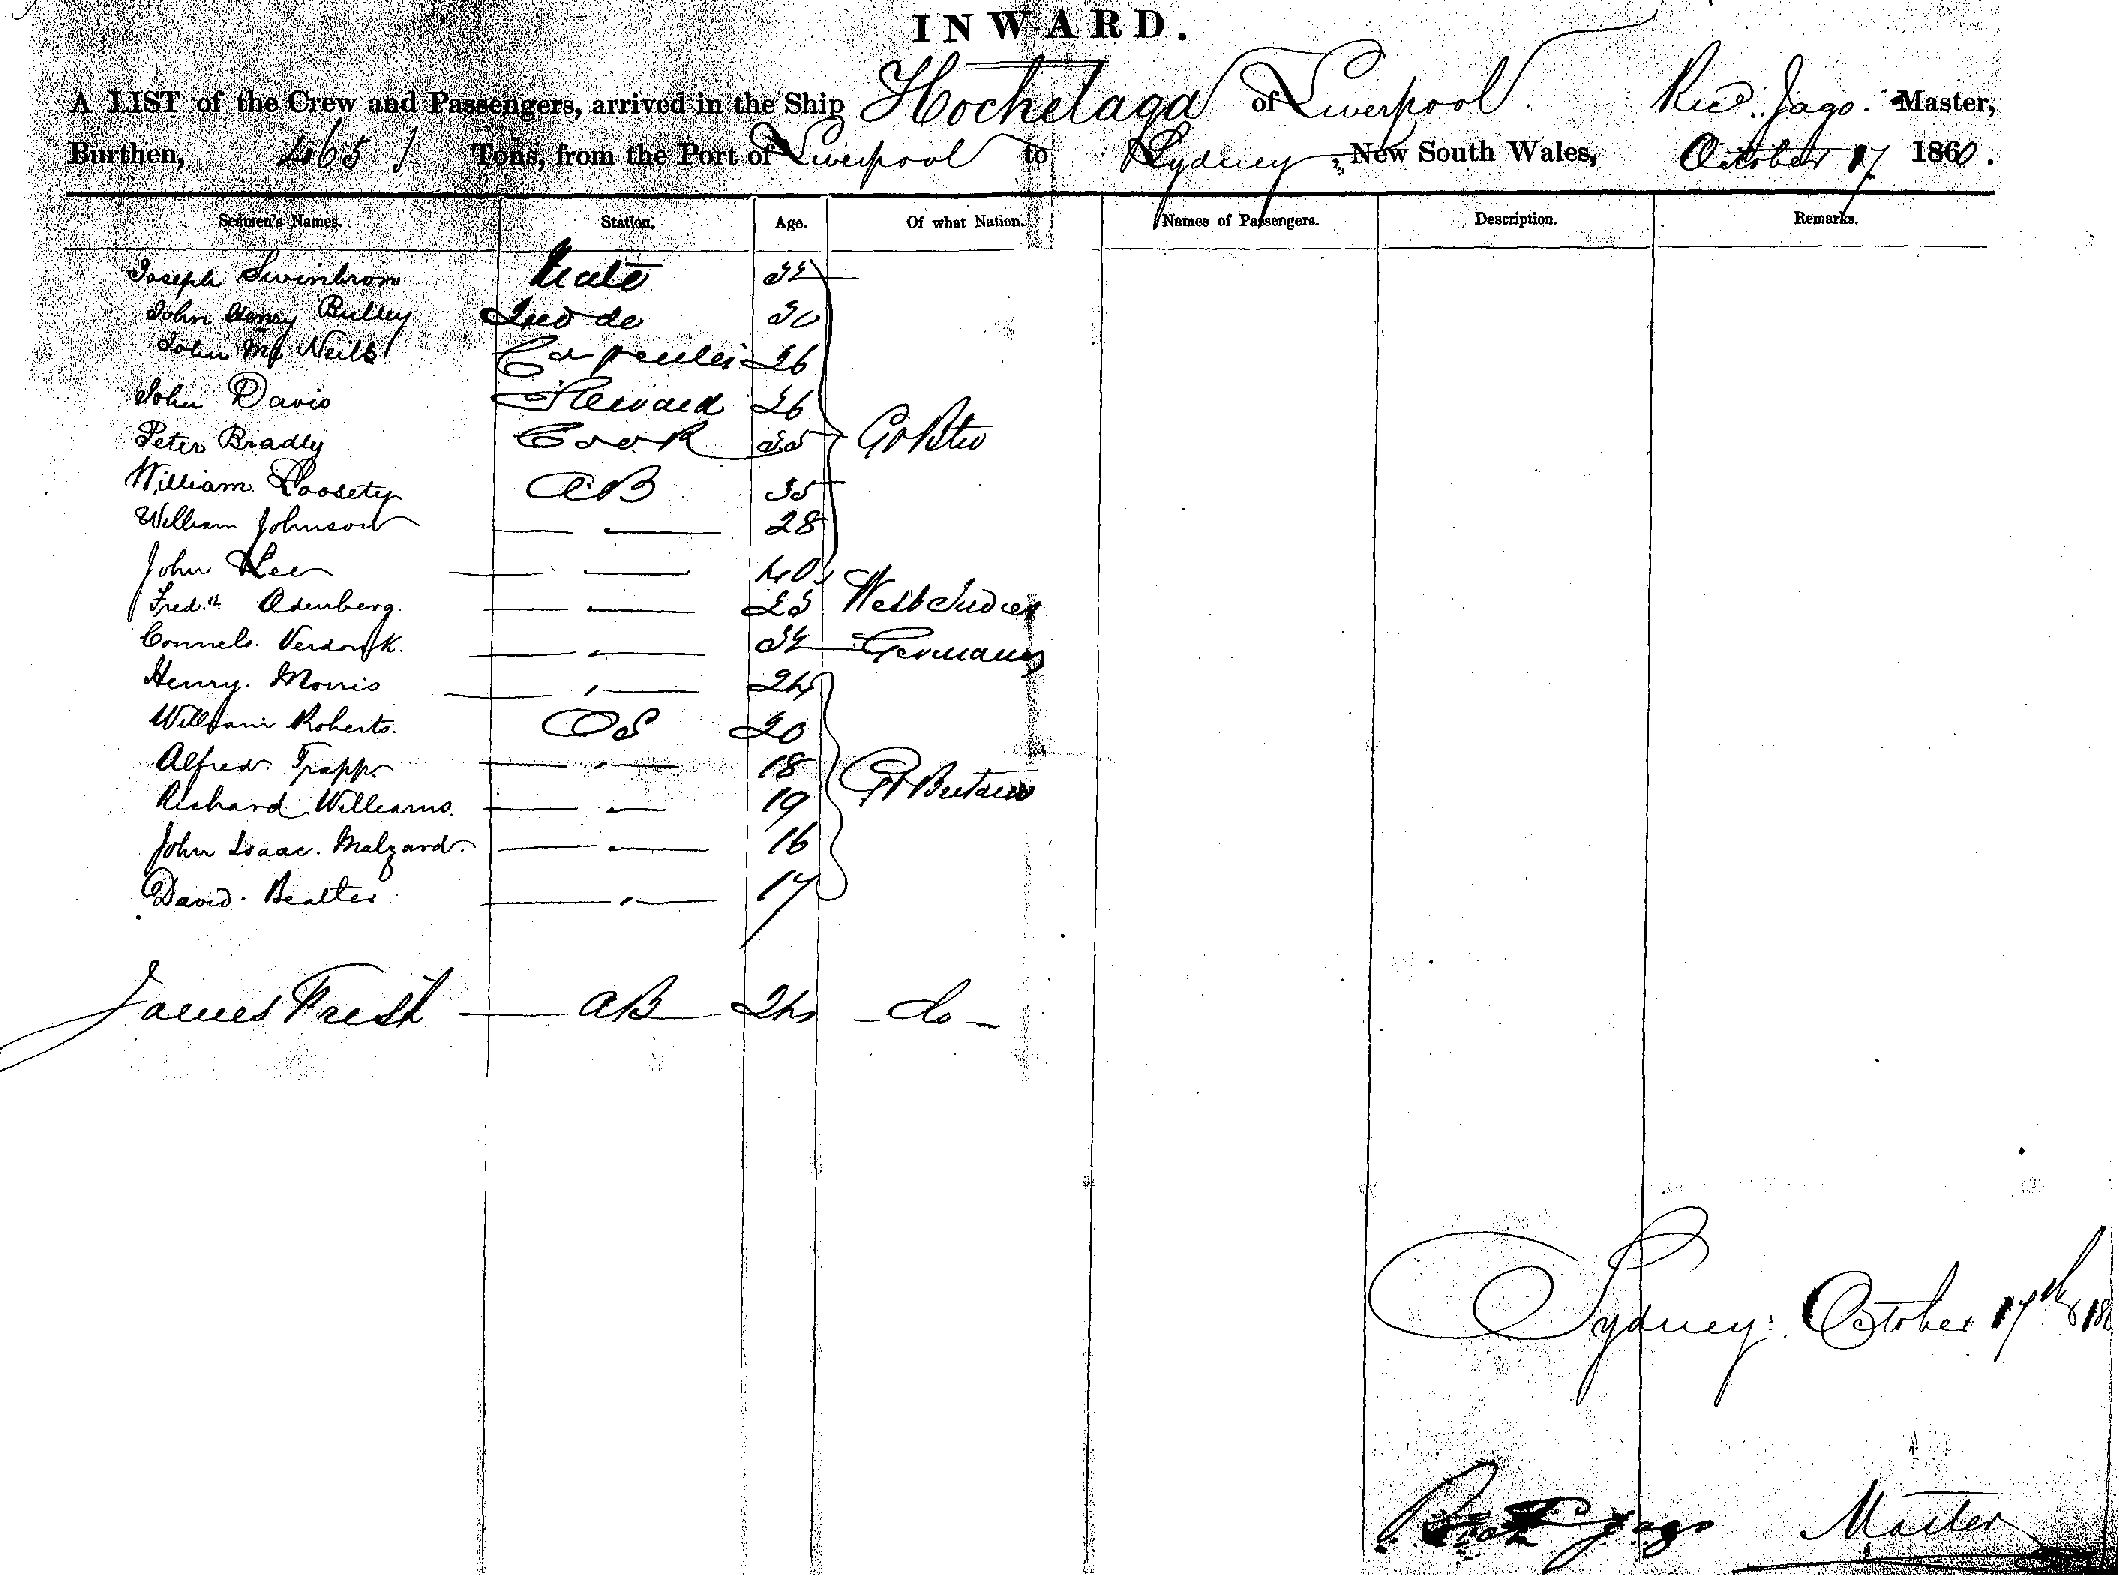 INWARD.
A LIST of the Crew and Passengers, arrived in the Ship Hochelaga of Liverpool Ricd. Jago. Master,
Burthen, 465 Tons, from the Port of Liverpool to Sydney, New South Wales, October 17 1860.
Seamen's Names. Station. Age. Of what Nation. Names of Passengers. Description. Remarks.
Joseph Swinbron Mate
John Henry Bulley Secd do 30
John Mc Neils Carpenter 26
John Davis Steward 26
Peter Bradly Cook 35 Gt Btn
William Loosety AB 35
William Johnson — — 28
John Lee — — 40
Fredth Odenberg. — — 25 West Indies
Connels. Verdonk. — — Germany
Henry. Morris — — 24
William Roberts. OS 20
Alfred Trapp — — 18 Gt Britain
Richard Williams. — — 19
John Isaac. Malzard. — — 16
David. Beatter — — 17
James Frest — AB 24 — do —
Sydney. October 17th 18
Richd Jago Master